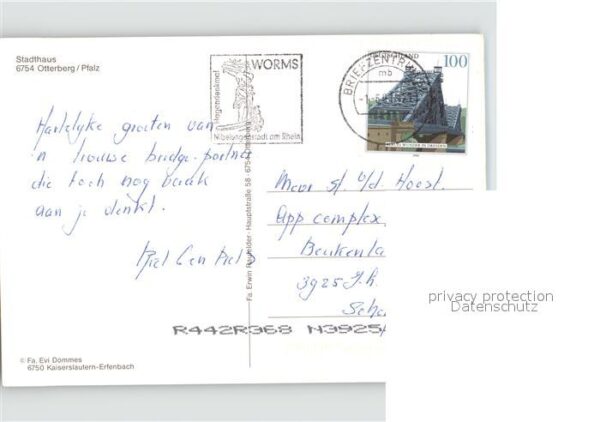 Stadthaus
6754 Otterberg / Pfalz
WORMS
Hagendenkmal
Nibelungenstadt am Rhein
BRIEFZENTRUM
mb
DEUTSCHLAND
100
Hartelijke groeten van
'n trouwe bridge-partner
die toch nog vaak
aan je denkt.
Mevr. st. v/d Hoest
App complex
Beukenla
3925 J.h.
Scha
Fa. Erwin Hauptstraße 58 · 6754
privacy protection
Datenschutz
R442R368 N3925
© Fa. Evi Dommes
6750 Kaiserslautern-Erfenbach